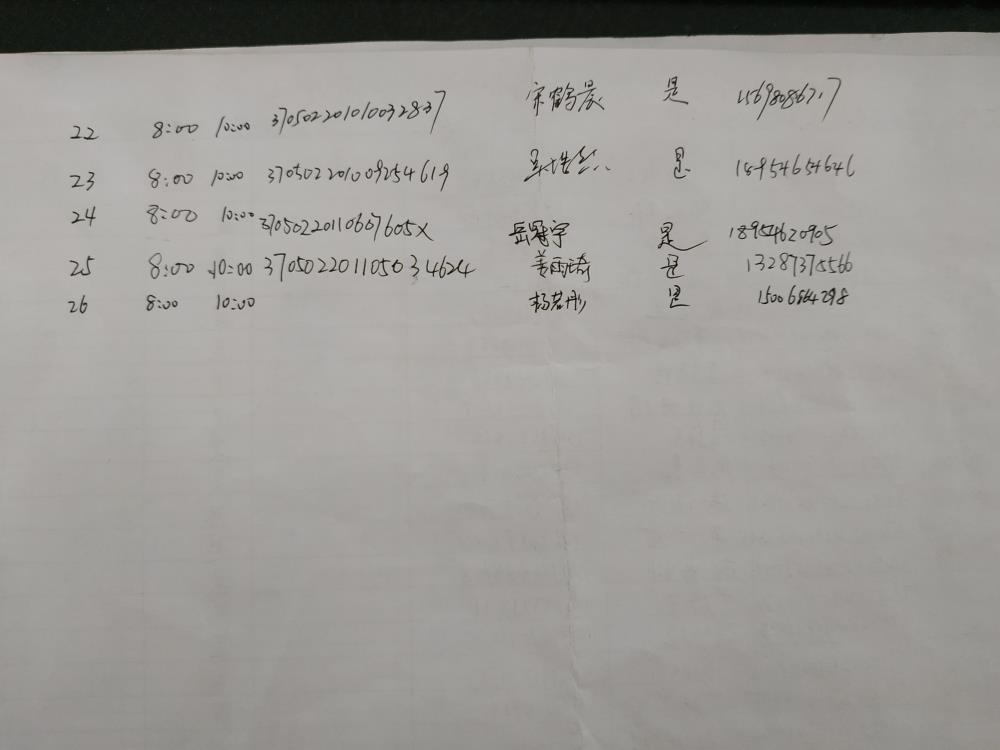 22 8:00 10:00 370502201010032837 宋鹤晨 是 15698086717
23 8:00 10:00 370502201009254619 是 18954654646
24 8:00 10:00 37050220110607605X 岳冠宇 是 18954620905
25 8:00 10:00 370502201105034624 姜雨琦 是 13287375566
26 8:00 10:00 杨若彤 是 15006864298